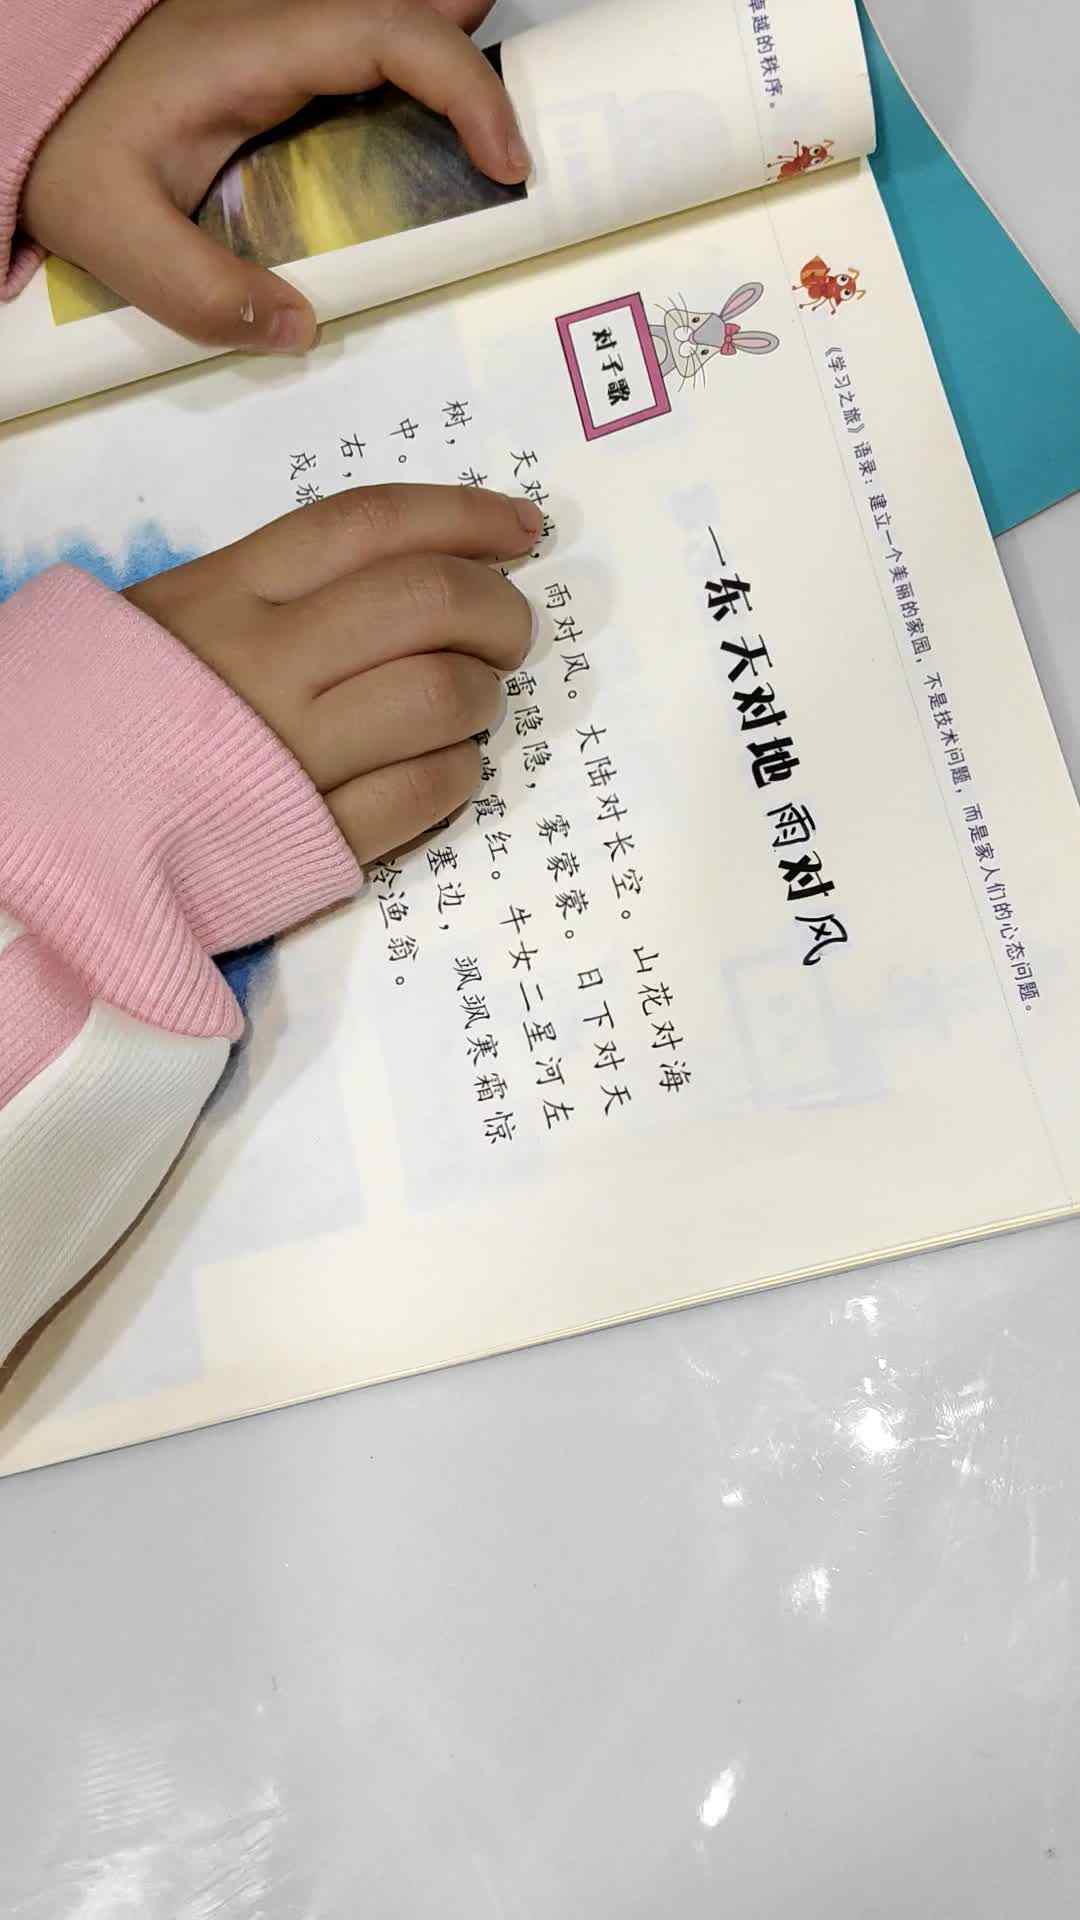 卓越的秩序。
《学习之旅》语录：建立一个美丽的家园，不是技术问题，而是家人们的心态问题。
对子歌
一东 天对地 雨对风
天对地，雨对风。大陆对长空。山花对海
树，赤 雷隐隐，雾蒙蒙。日下对天
中。 霞红。牛女二星河左
右， 塞边，飒飒寒霜惊
戍旅 冷渔翁。